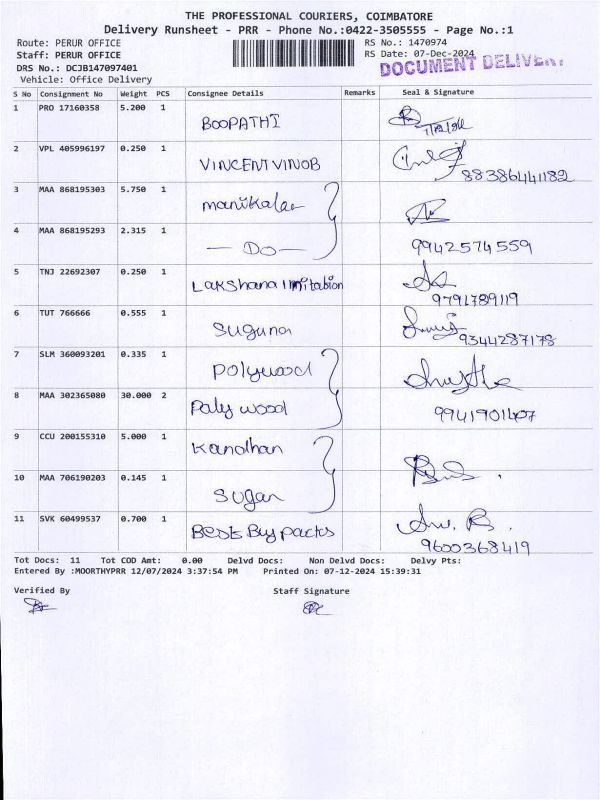 THE PROFESSIONAL COURIERS, COIMBATORE
Delivery Runsheet - PRR - Phone No.:0422-3505555 - Page No.:1
Route: PERUR OFFICE RS No.: 1470974
Staff: PERUR OFFICE RS Date: 07-Dec-2024
DRS No.: DCJB147097401 DOCUMENT DELIVERY
Vehicle: Office Delivery
S No Consignment No Weight PCS Consignee Details Remarks Seal & Signature
1 PRO 17160358 5.200 1 BOOPATHI
2 VPL 405996197 0.250 1 VINCENT VINOB 88386441182
3 MAA 868195303 5.750 1
4 MAA 868195293 2.315 1 — DO — 9942574559
5 TNJ 22692307 0.250 1 Lakshana Imitation 9791789119
6 TUT 766666 0.555 1 Suguna 9344287178
7 SLM 360093201 0.335 1 Polywood
8 MAA 302365080 30.000 2 Paly wood 9941901407
9 CCU 200155310 5.000 1 Kandhan
10 MAA 706190203 0.145 1 Sugan
11 SVK 60499537 0.700 1 Best Buy packs 9600368419
Tot Docs: 11 Tot COD Amt: 0.00 Delvd Docs: Non Delvd Docs: Delvy Pts:
Entered By :MOORTHYPRR 12/07/2024 3:37:54 PM Printed On: 07-12-2024 15:39:31
Verified By Staff Signature